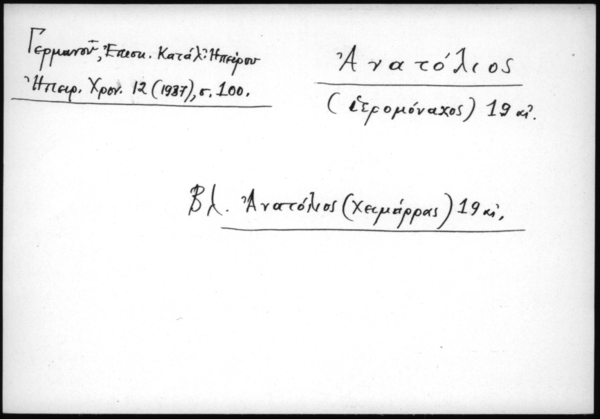 Γερμανοῦ, Ἐπισκ. Κατάλ. Ἠπείρου
Ἠπειρ. Χρον. 12 (1937), σ. 100.
Ἀνατόλιος
(ἱερομόναχος) 19 αἰ.
Βλ. Ἀνατόλιος (Χειμάρρας) 19 αἰ.